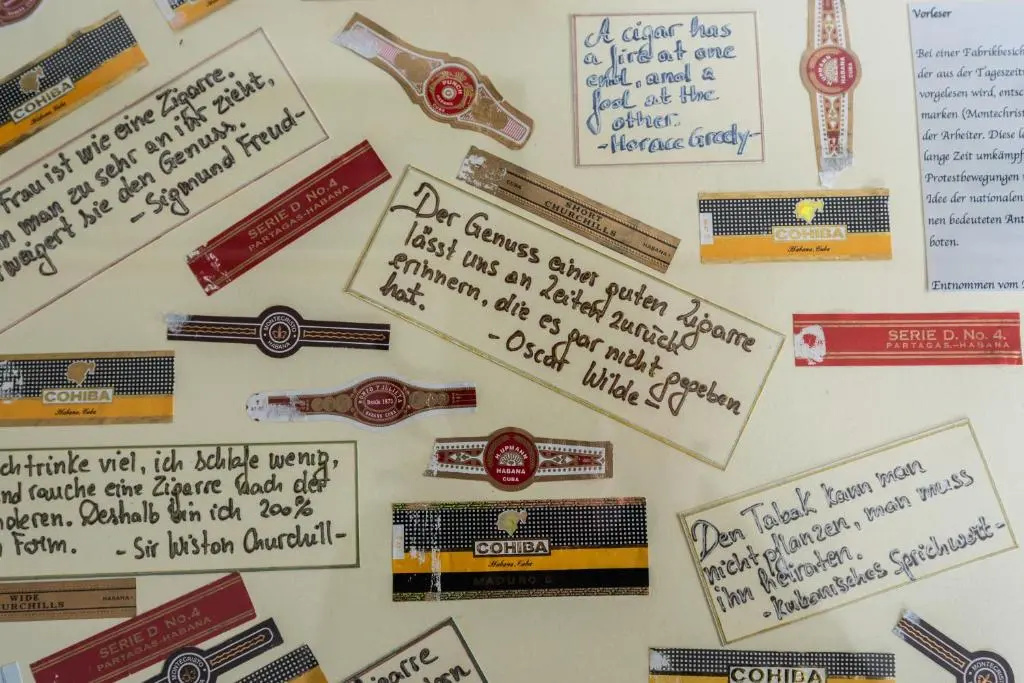 COHIBA
Habana, Cuba
Frau ist wie eine Zigarre.
man zu sehr an ihr zieht,
weigert sie den Genuss.
- Sigmund Freud-
PUNCH
HABANA
CUBA
A cigar has
a fire at one
end, and a
fool at the
other.
-Horace Greely-
HABANA
Vorleser
Bei einer Fabrikbesich
der aus der Tageszeit
vorgelesen wird, entsc
marken (Montechrist
der Arbeiter. Diese l
lange Zeit umkämpf
Protestbewegungen
Idee der nationalen
nen bedeuteten Ant
boten.
Entnommen vom
SERIE D No. 4
PARTAGAS-HABANA
CUBA
SHORT
CHURCHILLS
HABANA
COHIBA
Habana, Cuba
Der Genuss einer guten Zigarre
lässt uns an Zeiten zurück
erinnern, die es gar nicht gegeben
hat.
- Oscar Wilde -
MONTECRISTO
HABANA
SERIE D. No. 4.
PARTAGAS-HABANA
COHIBA
Habana, Cuba
ROMEO Y JULIETA
Desde 1875
HABANA CUBA
H. UPMANN
HABANA
CUBA
ch trinke viel, ich schlafe wenig,
nd rauche eine Zigarre nach der
nderen. Deshalb bin ich 200%
Form. - Sir Wiston Churchill-
COHIBA
Habana, Cuba
MADURO 5
Den Tabak kann man
nicht pflanzen, man muss
ihn heiraten.
- kubanisches Sprichwort -
WIDE
CHURCHILLS
HABANA
SERIE D No. 4
PARTAGAS-HABANA
MONTECRISTO
COHIBA